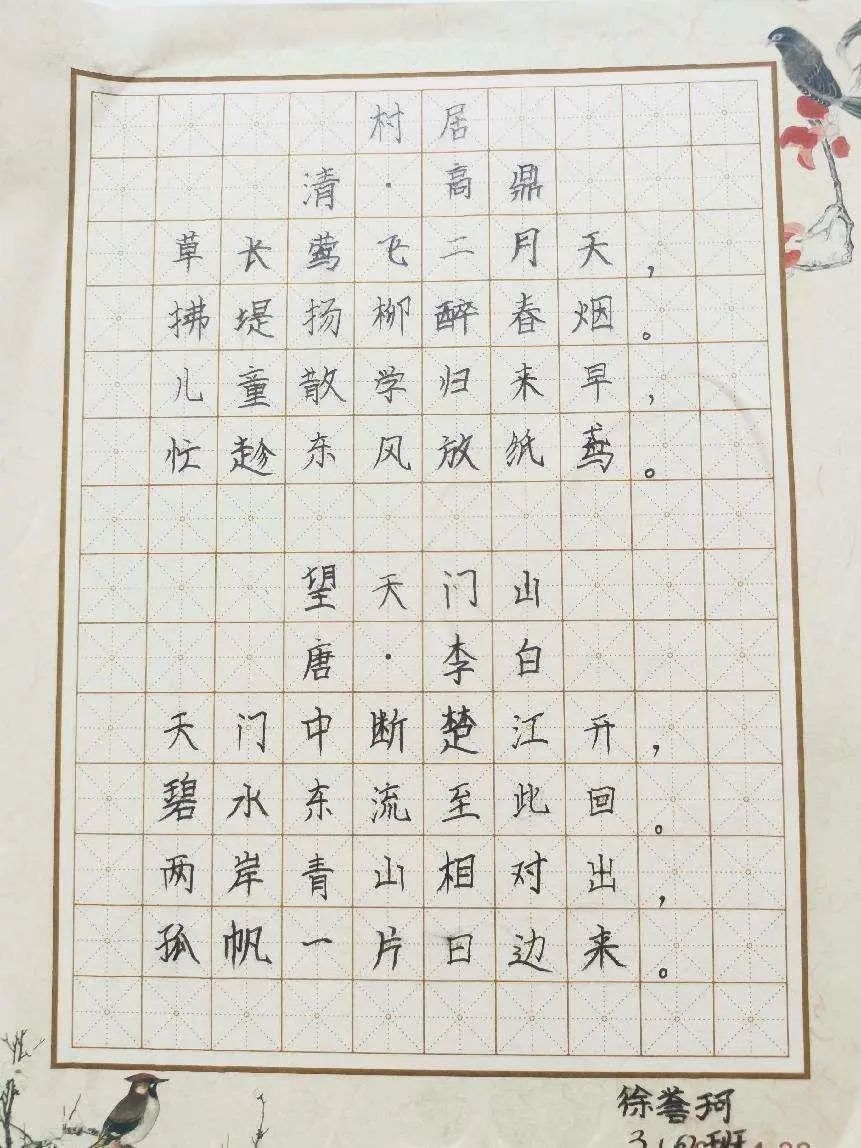 村居
清·高鼎
草长莺飞二月天，
拂堤扬柳醉春烟。
儿童散学归来早，
忙趁东风放纸鸢。
望天门山
唐·李白
天门中断楚江开，
碧水东流至此回。
两岸青山相对出，
孤帆一片日边来。
徐荟珂